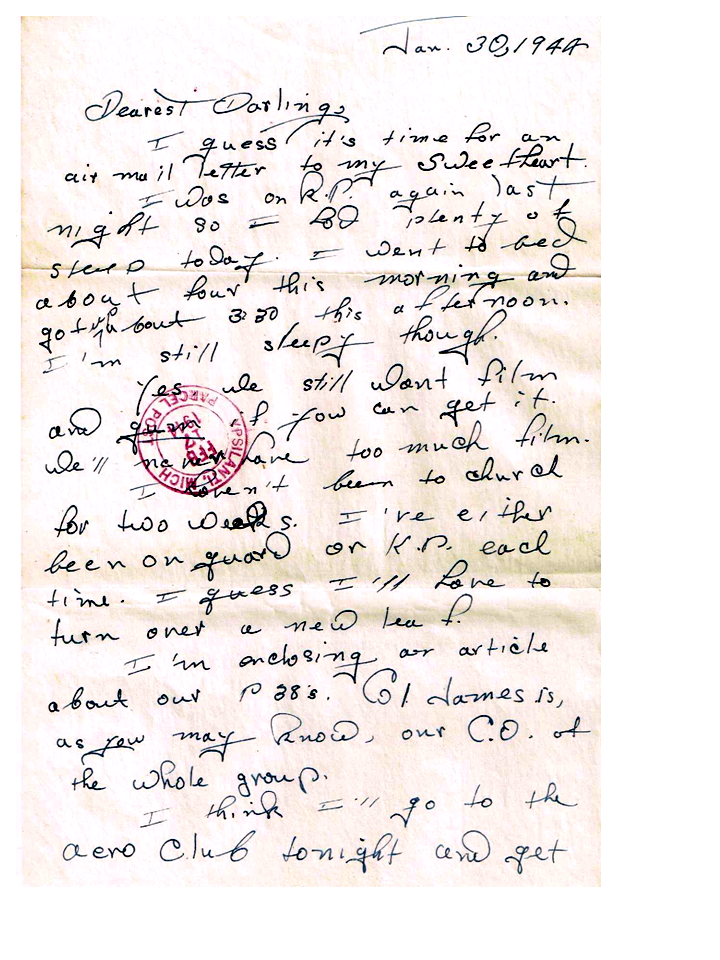 Jan. 30, 1944
Dearest Darling,
I guess it's time for an
air mail letter to my Sweetheart.
I was on K.P. again last
night so I had plenty of
sleep today. I went to bed
about four this morning and
got up about 3:30 this afternoon.
I'm still sleepy though.
Yes we still want film
and gum if you can get it.
We'll never have too much film.
I haven't been to church
for two weeks. I've either
been on guard or K.P. each
time. I guess I'll have to
turn over a new leaf.
I'm enclosing an article
about our P 38's. Col. James is,
as you may know, our C.O. of
the whole group.
I think I'll go to the
aero Club tonight and get
YPSILANTI, MICH
FEB
1944
PARCEL POST